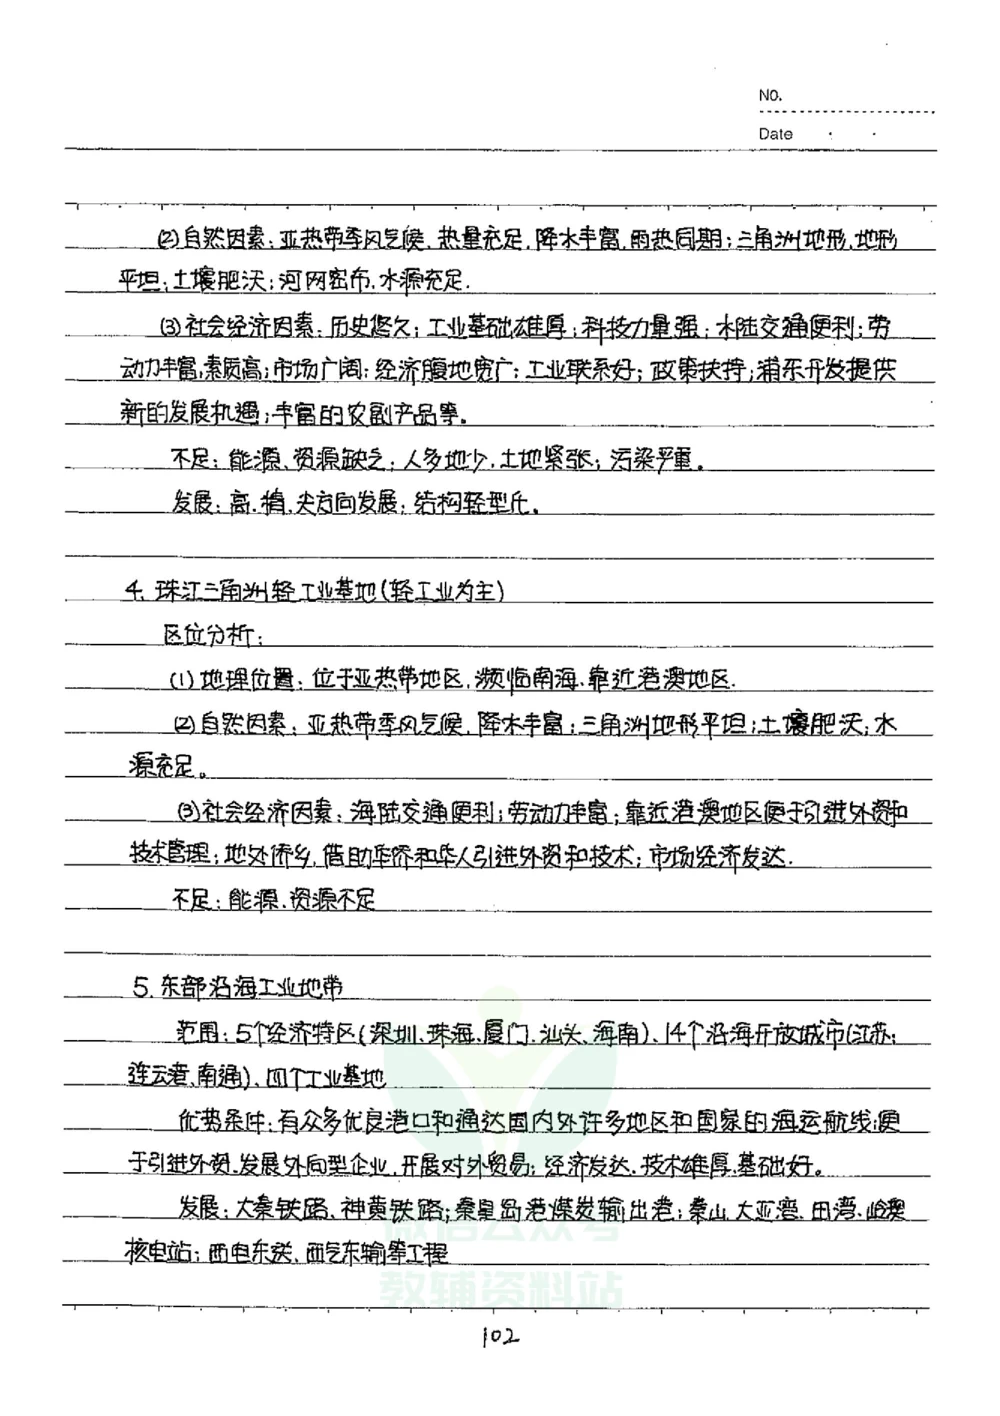 NO.
Date
(2)自然因素:亚热带季风气候,热量充足,降水丰富,雨热同期;三角洲地形,地形
平坦;土壤肥沃;河网密布,水源充足.
(3)社会经济因素:历史悠久;工业基础雄厚;科技力量强;水陆交通便利;劳
动力丰富,素质高;市场广阔;经济腹地宽广;工业联系好;政策扶持;浦东开发提供
新的发展机遇;丰富的农副产品等。
不足:能源、资源缺乏;人多地少,土地紧张;污染严重。
发展:高.精.尖方向发展;结构轻型化。
4.珠江三角洲轻工业基地(轻工业为主)
区位分析:
(1)地理位置:位于亚热带地区,濒临南海,靠近港澳地区.
(2)自然因素:亚热带季风气候,降水丰富;三角洲地形平坦;土壤肥沃;水
源充足。
(3)社会经济因素:海陆交通便利;劳动力丰富;靠近港澳地区便于引进外资和
技术管理;地处侨乡,借助华侨和华人引进外资和技术;市场经济发达.
不足:能源、资源不足
5.东部沿海工业地带
范围:5个经济特区(深圳、珠海、厦门、汕头、海南)、14个沿海开放城市(江苏:
连云港、南通)、四个工业基地
优势条件:有众多优良港口和通达国内外许多地区和国家的海运航线;便
于引进外资、发展外向型企业,开展对外贸易;经济发达、技术雄厚、基础好。
发展:大秦铁路、神黄铁路;秦皇岛港煤炭输出港;秦山、大亚湾、田湾、岭澳
核电站;西电东送、西气东输等工程
微信公众号
教辅资料站
102